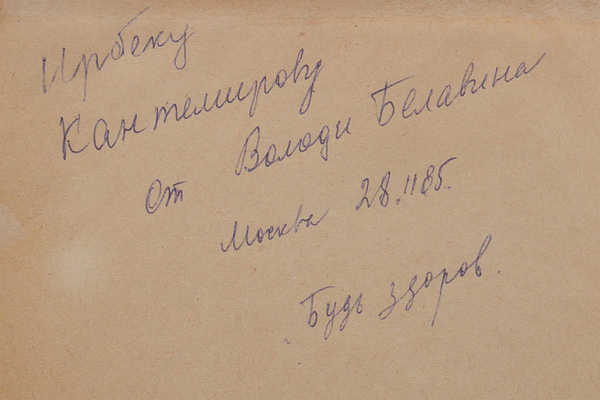 Ирбеку
Кантемирову
от Володи Белавина
Москва 28.II85.
Будь здоров.